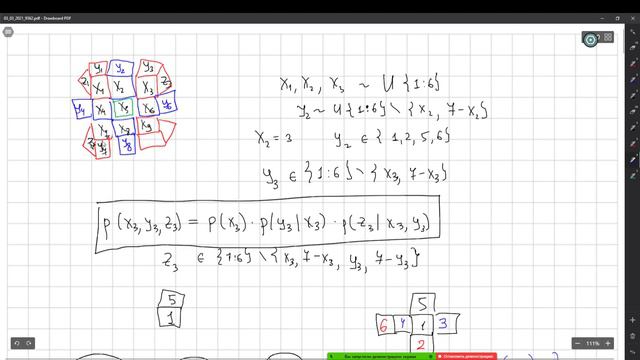 03_03_2021_9362.pdf - Drawboard PDF
y₁ y₂ y₃
z₁ x₁ x₂ x₃ z₃
y₄ x₄ x₅ x₆ y₆
x₇ x₈ x₉
y₇ y₈
x₁, x₂, x₃ ~ U {1:6}
y₂ ~ U {1:6} \ {x₂, 7-x₂}
x₂ = 3 y₂ ∈ {1,2,5,6}
y₃ ∈ {1:6} \ {x₃, 7-x₃}
p(x₃, y₃, z₃) = p(x₃) · p(y₃|x₃) · p(z₃|x₃, y₃)
z₃ ∈ {1:6} \ {x₃, 7-x₃, y₃, 7-y₃}
5
1
5
6 4 1 3
2
111%